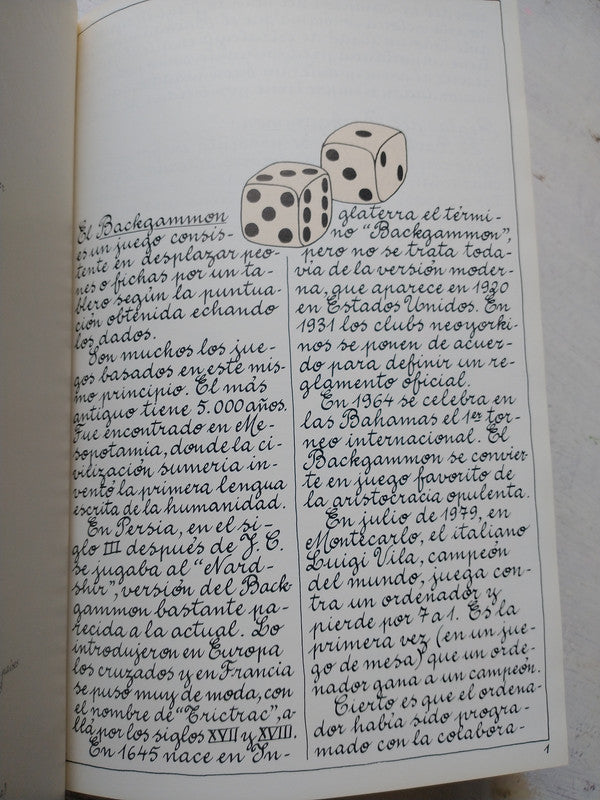 El Backgammon
es un juego consis-
tente en desplazar peo-
nes o fichas por un ta-
blero según la puntua-
ción obtenida echando
los dados.
Son muchos los jue-
gos basados en este mis-
mo principio. El más
antiguo tiene 5.000 años.
Fue encontrado en Me-
sopotamia, donde la ci-
vilización sumeria in-
ventó la primera lengua
escrita de la humanidad.
En Persia, en el si-
glo III después de J. C.
se jugaba al "Nard-
shir", versión del Back-
gammon bastante pa-
recida a la actual. Lo
introdujeron en Europa
los cruzados y en Francia
se puso muy de moda, con
el nombre de "Trictrac", a-
llá por los siglos XVII y XVIII.
En 1645 nace en In-
glaterra el térmi-
no "Backgammon",
pero no se trata toda-
vía de la versión moder-
na, que aparece en 1920
en Estados Unidos. En
1931 los clubs neoyorki-
nos se ponen de acuer-
do para definir un re-
glamento oficial.
En 1964 se celebra en
las Bahamas el 1er tor-
neo internacional. El
Backgammon se convier-
te en juego favorito de
la aristocracia opulenta.
En julio de 1979, en
Montecarlo, el italiano
Luigi Vila, campeón
del mundo, juega con-
tra un ordenador y
pierde por 7 a 1. Es la
primera vez (en un jue-
go de mesa) que un orde-
nador gana a un campeón.
Cierto es que el ordena-
dor había sido progra-
mado con la colabora-
1